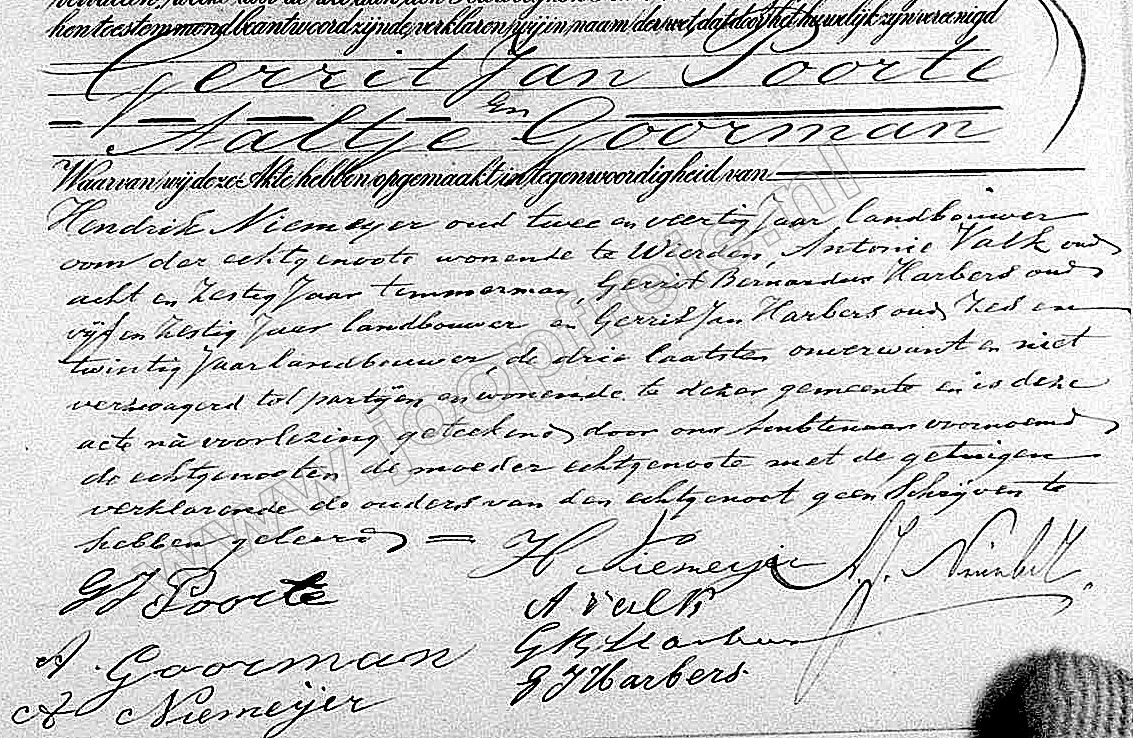 hen toestemmend beantwoord zijnde, verklaren wij in naam der wet, dat door het huwelijk zijn vereenigd
Gerrit Jan Poorte
En
Aaltje Goorman
Waarvan wij deze Akte hebben opgemaakt in tegenwoordigheid van
Hendrik Niemeyer oud twee en veertig Jaar landbouwer
oom der echtgenoote wonende te Wierden, Antonie Valk oud
acht en Zestig Jaar timmerman, Gerrit Bernardus Harbers oud
vijf en Zestig Jaar landbouwer en Gerrit Jan Harbers oud Zes en
twintig Jaar landbouwer, de drie laatsten onverwant en niet
verzwagerd tot partijen en wonende te dezer gemeente en is deze
acte na voorlezing geteekend door ons Ambtenaar voornoemd
de echtgenooten de moeder echtgenoote met de getuigen
verklarende de ouders van den echtgenoot geen Schrijven te
hebben geleerd
H Niemeijer A.J.
GJ Poorte
A Valk
A Goorman
GB Harbers
GJ Harbers
A Niemeijer
www.jpopfiets.nl